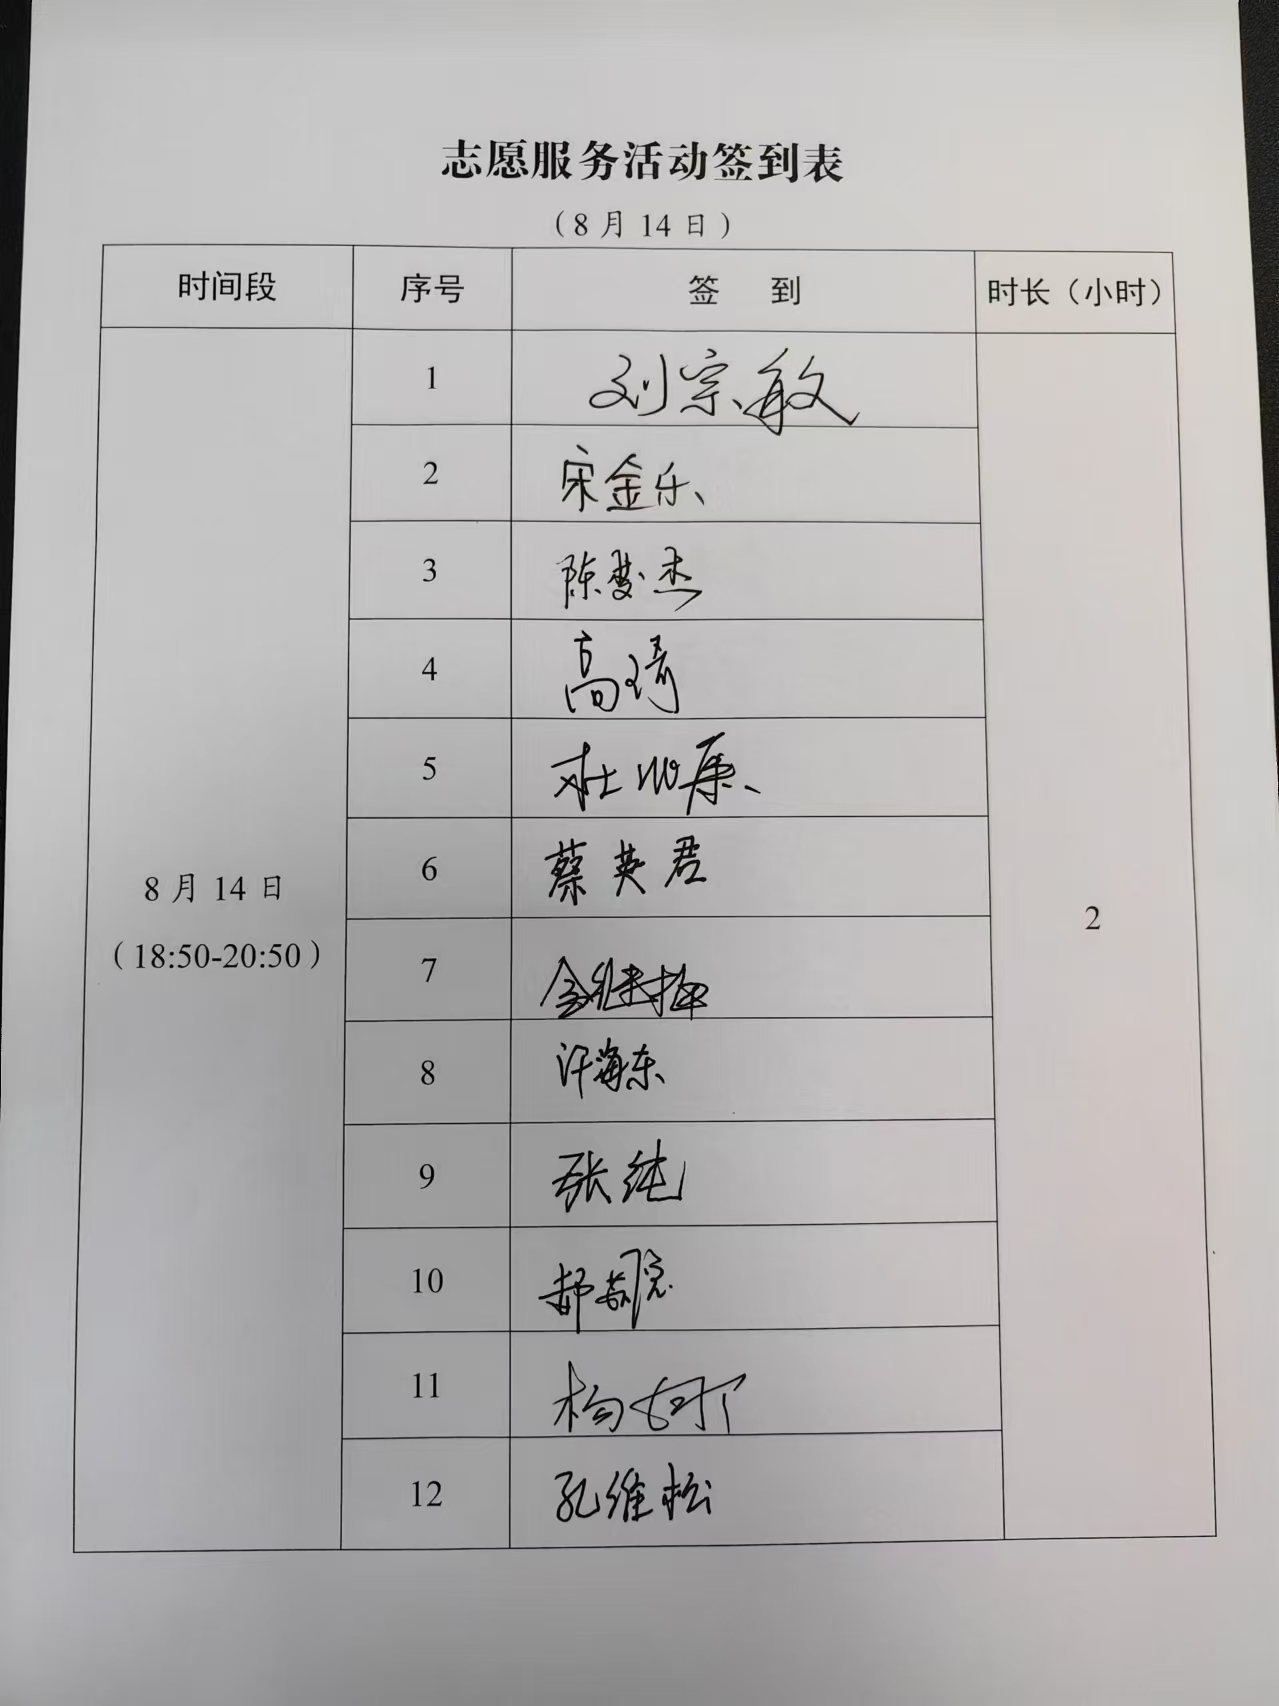 志愿服务活动签到表
（8 月 14 日）
时间段 序号 签 到 时长（小时）
1 刘宗敏
2 宋金乐
3 陈梦杰
4 高琦
5 杜
6 蔡英君
8月14日
（18:50-20:50）
7 金继
2
8 许海东
9 张纯
10 郝
11 杨
12 孔维松